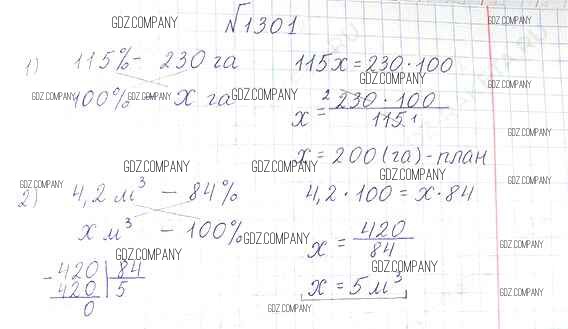 GDZ.COMPANY
№1301
GDZ.COMPANY
1) 115% - 230 га
115x = 230 · 100
GDZ.COMPANY
GDZ.COMPANY
GDZ.COMPANY
GDZ.COMPANY
100% - x га
GDZ.COMPANY
GDZ.COMPANY
x = 230 · 100 / 115
2
1
GDZ.COMPANY
x = 200 (га) - план
GDZ.COMPANY
GDZ.COMPANY
GDZ.COMPANY
GDZ.COMPANY
GDZ.COMPANY
2) 4,2 м³ - 84%
4,2 · 100 = x · 84
x м³ - 100%
GDZ.COMPANY
x = 420 / 84
GDZ.COMPANY
GDZ.COMPANY
GDZ.COMPANY
- 420 | 84
420 | 5
0
x = 5 м³
GDZ.COMPANY
GDZ.COMPANY